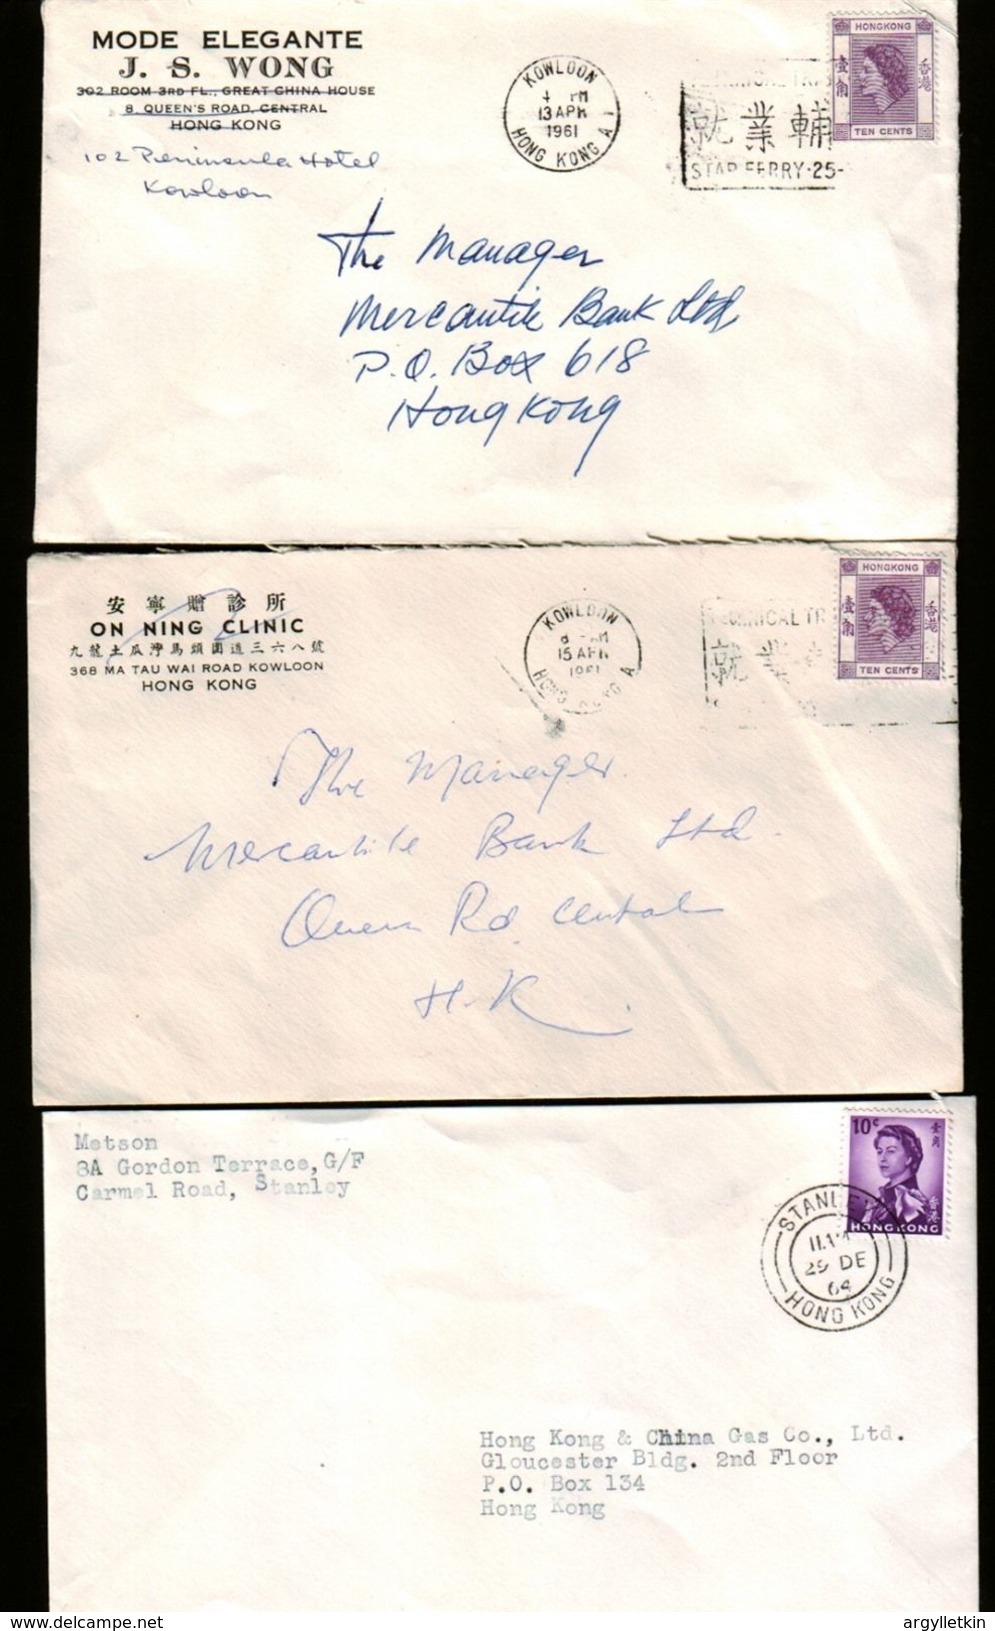 MODE ELEGANTE
J. S. WONG
302 ROOM 3RD FL., GREAT CHINA HOUSE
8, QUEEN'S ROAD, CENTRAL
HONG KONG
102 Peninsula Hotel
Kowloon
KOWLOON
13 APR
1961
HONG KONG
就業輔
STAR FERRY·25-
HONGKONG
壹角
香港
TEN CENTS
The Manager
Mercantile Bank Ltd
P.O. Box 618
Hong Kong
安寧贈診所
ON NING CLINIC
九龍土瓜灣馬頭圍道三六八號
368 MA TAU WAI ROAD KOWLOON
HONG KONG
KOWLOON
15 APR
1961
HONG KONG A
TECHNICAL TR
就業
HONGKONG
壹角
香港
TEN CENTS
The Manager
Mercantile Bank Ltd.
Queen Rd. Central
H.K.
Metson
8A Gordon Terrace, G/F
Carmel Road, Stanley
10c
壹角
香港
HONG KONG
STANLEY
29 DE
64
HONG KONG
Hong Kong & China Gas Co., Ltd.
Gloucester Bldg. 2nd Floor
P.O. Box 134
Hong Kong
www.delcampe.net
argylletkin